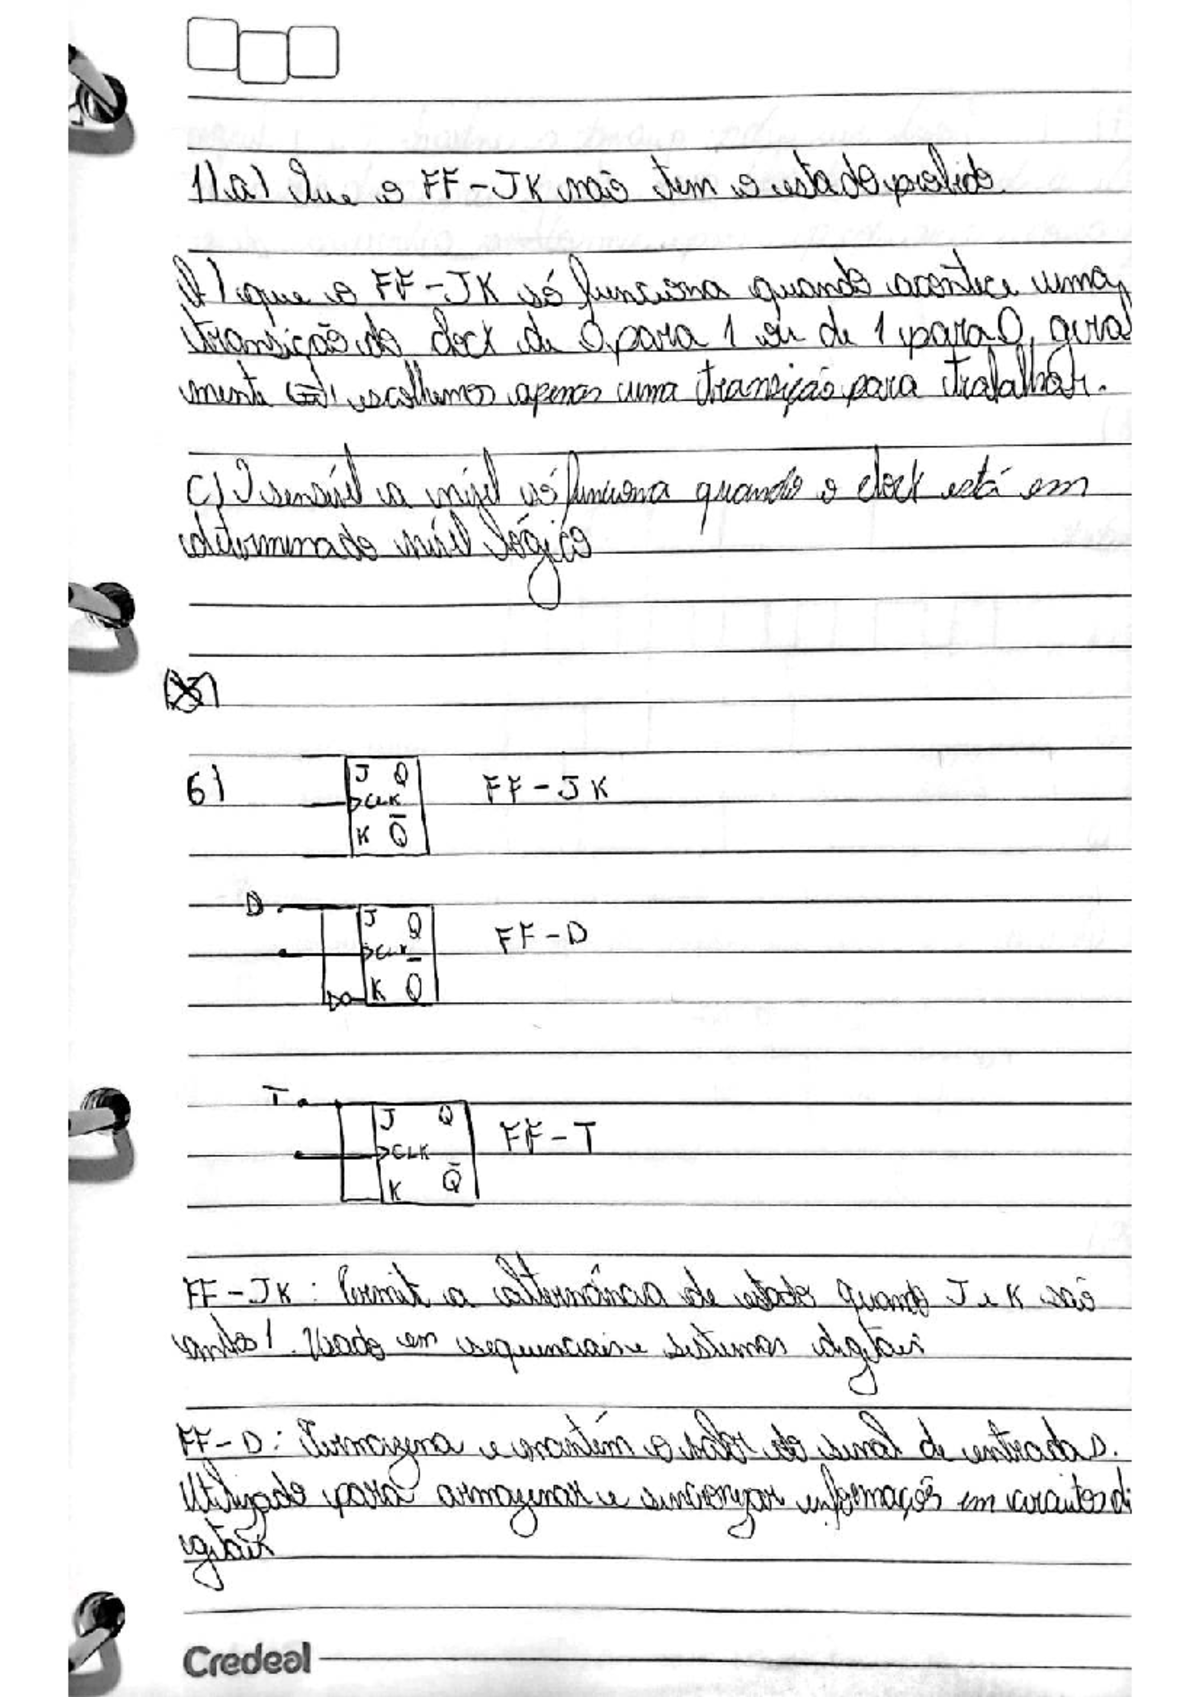 1) a) Que o FF-JK não tem o estado proibido.
b) que o FF-JK só funciona quando acontece uma
transição do clock de 0 para 1 ou de 1 para 0, geral
mente escolhemos apenas uma transição para trabalhar.
c) sensível a nível só funciona quando o clock está em
determinado nível lógico
6)
J Q
CLK
K Q̅
FF-JK
D
J Q
CLK
K Q̅
FF-D
T
J Q
CLK
K Q̅
FF-T
FF-JK: Permite a alternância de estado quando J e K são
ambos 1. Usado em sequenciais e sistemas digitais
FF-D: Armazena e mantém o valor do sinal de entrada D.
Utilizado para armazenar e sincronizar informações em circuitos di
gitais
Credeal